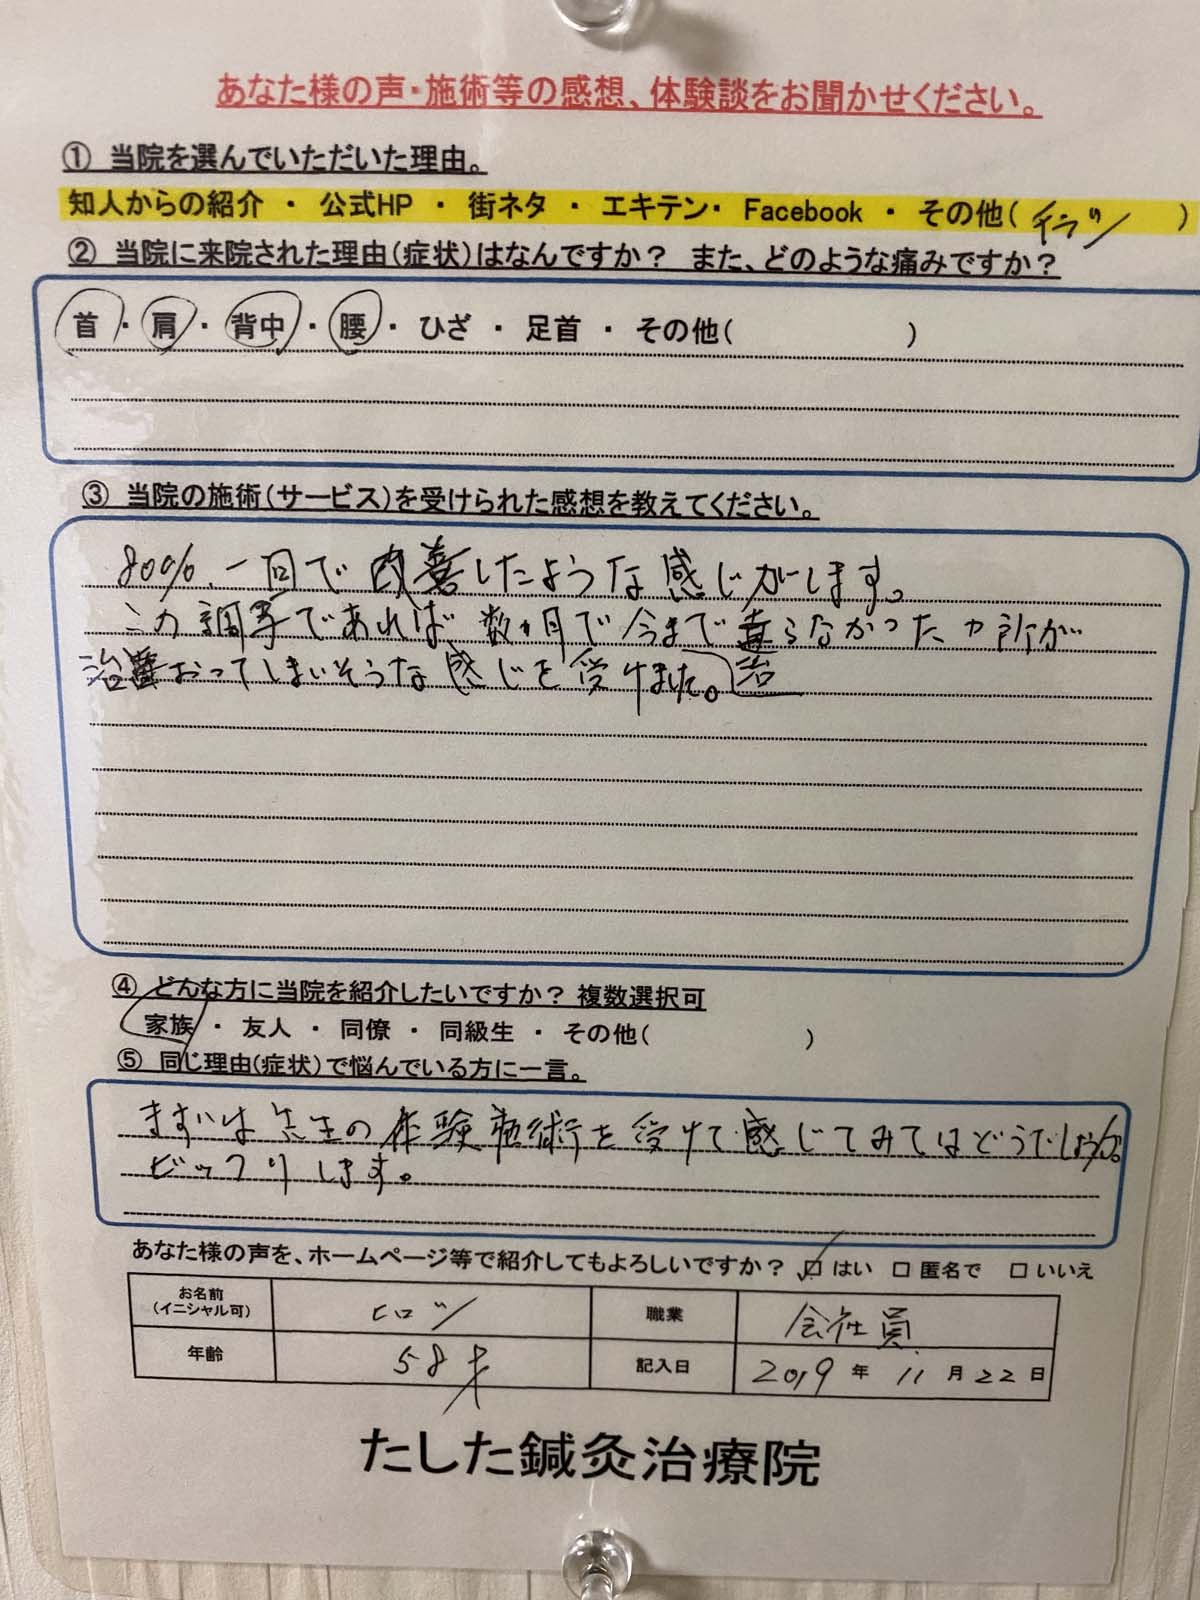 あなた様の声・施術等の感想、体験談をお聞かせください。
① 当院を選んでいただいた理由。
知人からの紹介 ・ 公式HP ・ 街ネタ ・ エキテン・ Facebook ・ その他( チラシ )
② 当院に来院された理由(症状)はなんですか? また、どのような痛みですか?
首 ・ 肩 ・ 背中 ・ 腰 ・ ひざ ・ 足首 ・ その他( )
③ 当院の施術(サービス)を受けられた感想を教えてください。
80%、一回で改善したような感じがします。
この調子であれば、数ヶ月で今まで治らなかったカ所が
治おってしまいそうな感じを受けました。
④ どんな方に当院を紹介したいですか? 複数選択可
家族 ・ 友人 ・ 同僚 ・ 同級生 ・ その他( )
⑤ 同じ理由(症状)で悩んでいる方に一言。
まずは先生の体験施術を受けて感じてみてはどうでしょうか。
ビックリします。
あなた様の声を、ホームページ等で紹介してもよろしいですか? ☑ はい □ 匿名で □ いいえ
お名前(イニシャル可) ヒロツ 職業 会社員
年齢 58才 記入日 2019 年 11 月 22 日
たした鍼灸治療院